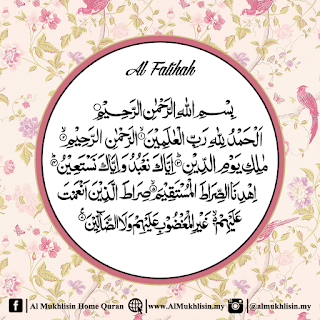 Al Fatihah
بِسْمِ اللهِ الرَّحْمٰنِ الرَّحِيْمِ ۝
اَلْحَمْدُ لِلّٰهِ رَبِّ الْعٰلَمِيْنَ ۝ الرَّحْمٰنِ الرَّحِيْمِ ۝
مٰلِكِ يَوْمِ الدِّيْنِ ۝ اِيَّاكَ نَعْبُدُ وَاِيَّاكَ نَسْتَعِيْنُ ۝
اِهْدِنَا الصِّرَاطَ الْمُسْتَقِيْمَ ۝ صِرَاطَ الَّذِيْنَ اَنْعَمْتَ
عَلَيْهِمْ ۝ غَيْرِ الْمَغْضُوْبِ عَلَيْهِمْ وَلَا الضَّآلِّيْنَ ۝
Al Mukhlisin Home Quran www.AlMukhlisin.my @almukhlisin.my